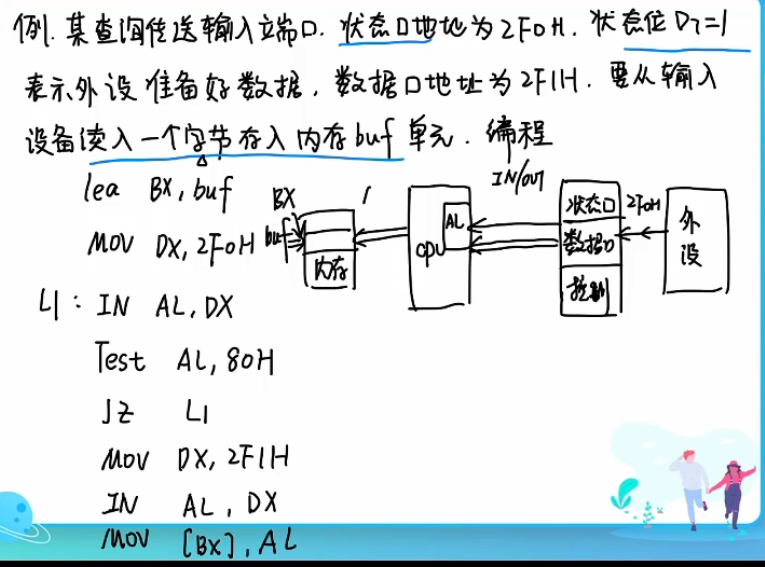 例. 某查询传送输入端口. 状态口地址为2F0H. 状态位D7=1
表示外设准备好数据, 数据口地址为2F1H. 要从输入
设备读入一个字节存入内存buf单元. 编程
lea BX, buf
MOV DX, 2F0H
L1: IN AL, DX
Test AL, 80H
JZ L1
MOV DX, 2F1H
IN AL, DX
MOV [BX], AL
BX
buf
内存
CPU
AL
IN/OUT
状态口
数据口
控制
2F0H
外设